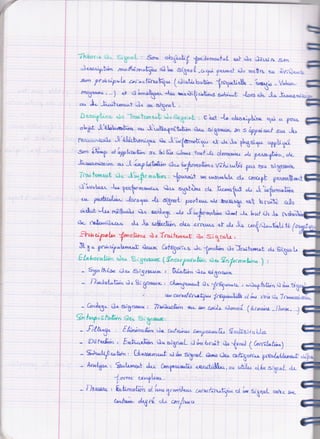 Théorie du Signal : Son objectif fondamental est de décrire son
description mathématique du signal, qui permet de mettre en évidence
ses principales caractéristiques (distribution fréquentielle - énergie - Valeur
moyenne...) et d'analyser les modifications subies lors de la transmission
ou du traitement de ce signal.
Discipline du Traitement du Signal : C'est la discipline qui a pour
objet l'élaboration ou l'interprétation des signaux en s'appuyant sur les
ressources de l'électronique de l'informatique et de la physique appliquée
son champ d'application se situe dans tout les domaines de perception, de
transmission ou l'exploitation des informations véhiculés par ses signaux.
Traitement de l'information : fournit un ensemble de concept permettant
d'évaluer les performances des systèmes de transfert de l'information
en particulier lorsque le signal porteur de message est bruité. Cela
inclut les méthodes de codage de l'information dans le but de la
de la détection des erreurs et de la confidentialité
Principales fonctions du Traitement du Signale :
Il y a principalement deux Catégories de fonction de Traitement du Signale
Elaboration des Signaux (Incorporation des Informations) :
- Synthèse des signaux : Création des signaux
- Modulation des Signaux : changement de fréquence - adaptation d'un Signal
aux caractéristiques fréquentielle d'une voie de Transmission
- Codage des signaux : Traduction en un code donné (binaire...)
Interprétation des Signaux :
- Filtrage : Elimination de certaines composantes Indésirables
- Détection : Extraction du signal d'un bruit de fond (Corrélation)
- Identification : Classement d'un signal dans des catégories préalablement
- Analyse : Isolement des Composantes essentielles ou utiles d'un signal de
forme complexe.
- Mesure : Estimation d'une grandeur caractéristique d'un signal avec un
certain degré de confiance